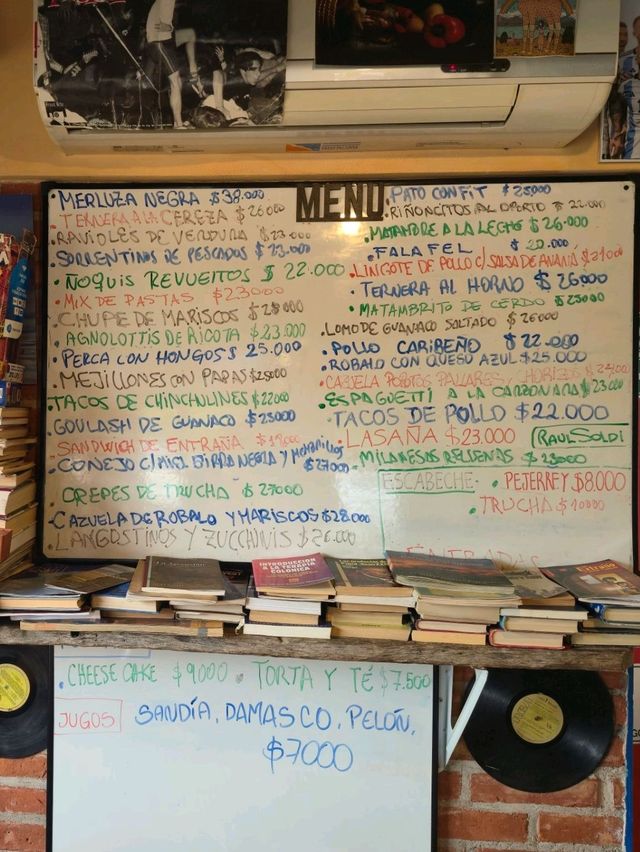 MENU
MERLUZA NEGRA $38.000
TERNERA A LA CEREZA $26000
RAVIOLES DE VERDURA $23.000
SORRENTINOS DE PESCADOS $23.000
ÑOQUIS REVUELTOS $22.000
MIX DE PASTAS $23000
CHUPE DE MARISCOS $28000
AGNOLOTTIS DE RICOTA $23.000
PERCA CON HONGOS $25.000
MEJILLONES CON PAPAS $25000
TACOS DE CHINCHULINES $22000
GOULASH DE GUANACO $25000
SANDWICH DE ENTRAÑA
CONEJO C/ BIRRA NEGRA Y $27000
CREPES DE TRUCHA $27000
CAZUELA DE ROBALO Y MARISCOS $28.000
LANGOSTINOS Y ZUCCHINIS $26.000
PATO CONFIT $25000
RIÑONCITOS AL OPORTO $22.000
MATAMBRE A LA LECHE $26.000
FALAFEL $20.000
LINGOTE DE POLLO C/ SALSA DE ANANÁ $21000
TERNERA AL HORNO $26000
MATAMBRITO DE CERDO $25000
LOMO DE GUANACO SALTADO $26000
POLLO CARIBEÑO $22.000
ROBALO CON QUESO AZUL $25.000
CAZUELA POROTOS PALLARES Y CHORIZOS $24000
ESPAGUETTI A LA CARBONARA $23.000
TACOS DE POLLO $22.000
LASAÑA $23.000 RAUL SOLDI
MILANESAS RELLENAS $23000
ESCABECHE · PEJERREY $8.000
· TRUCHA $10000
ENTRADAS
INTRODUCCION A LA TERAPIA COLÓNICA
CHEESE CAKE $9000 . TORTA Y TÉ $7.500
JUGOS SANDÍA, DAMASCO, PELÓN,
$7000